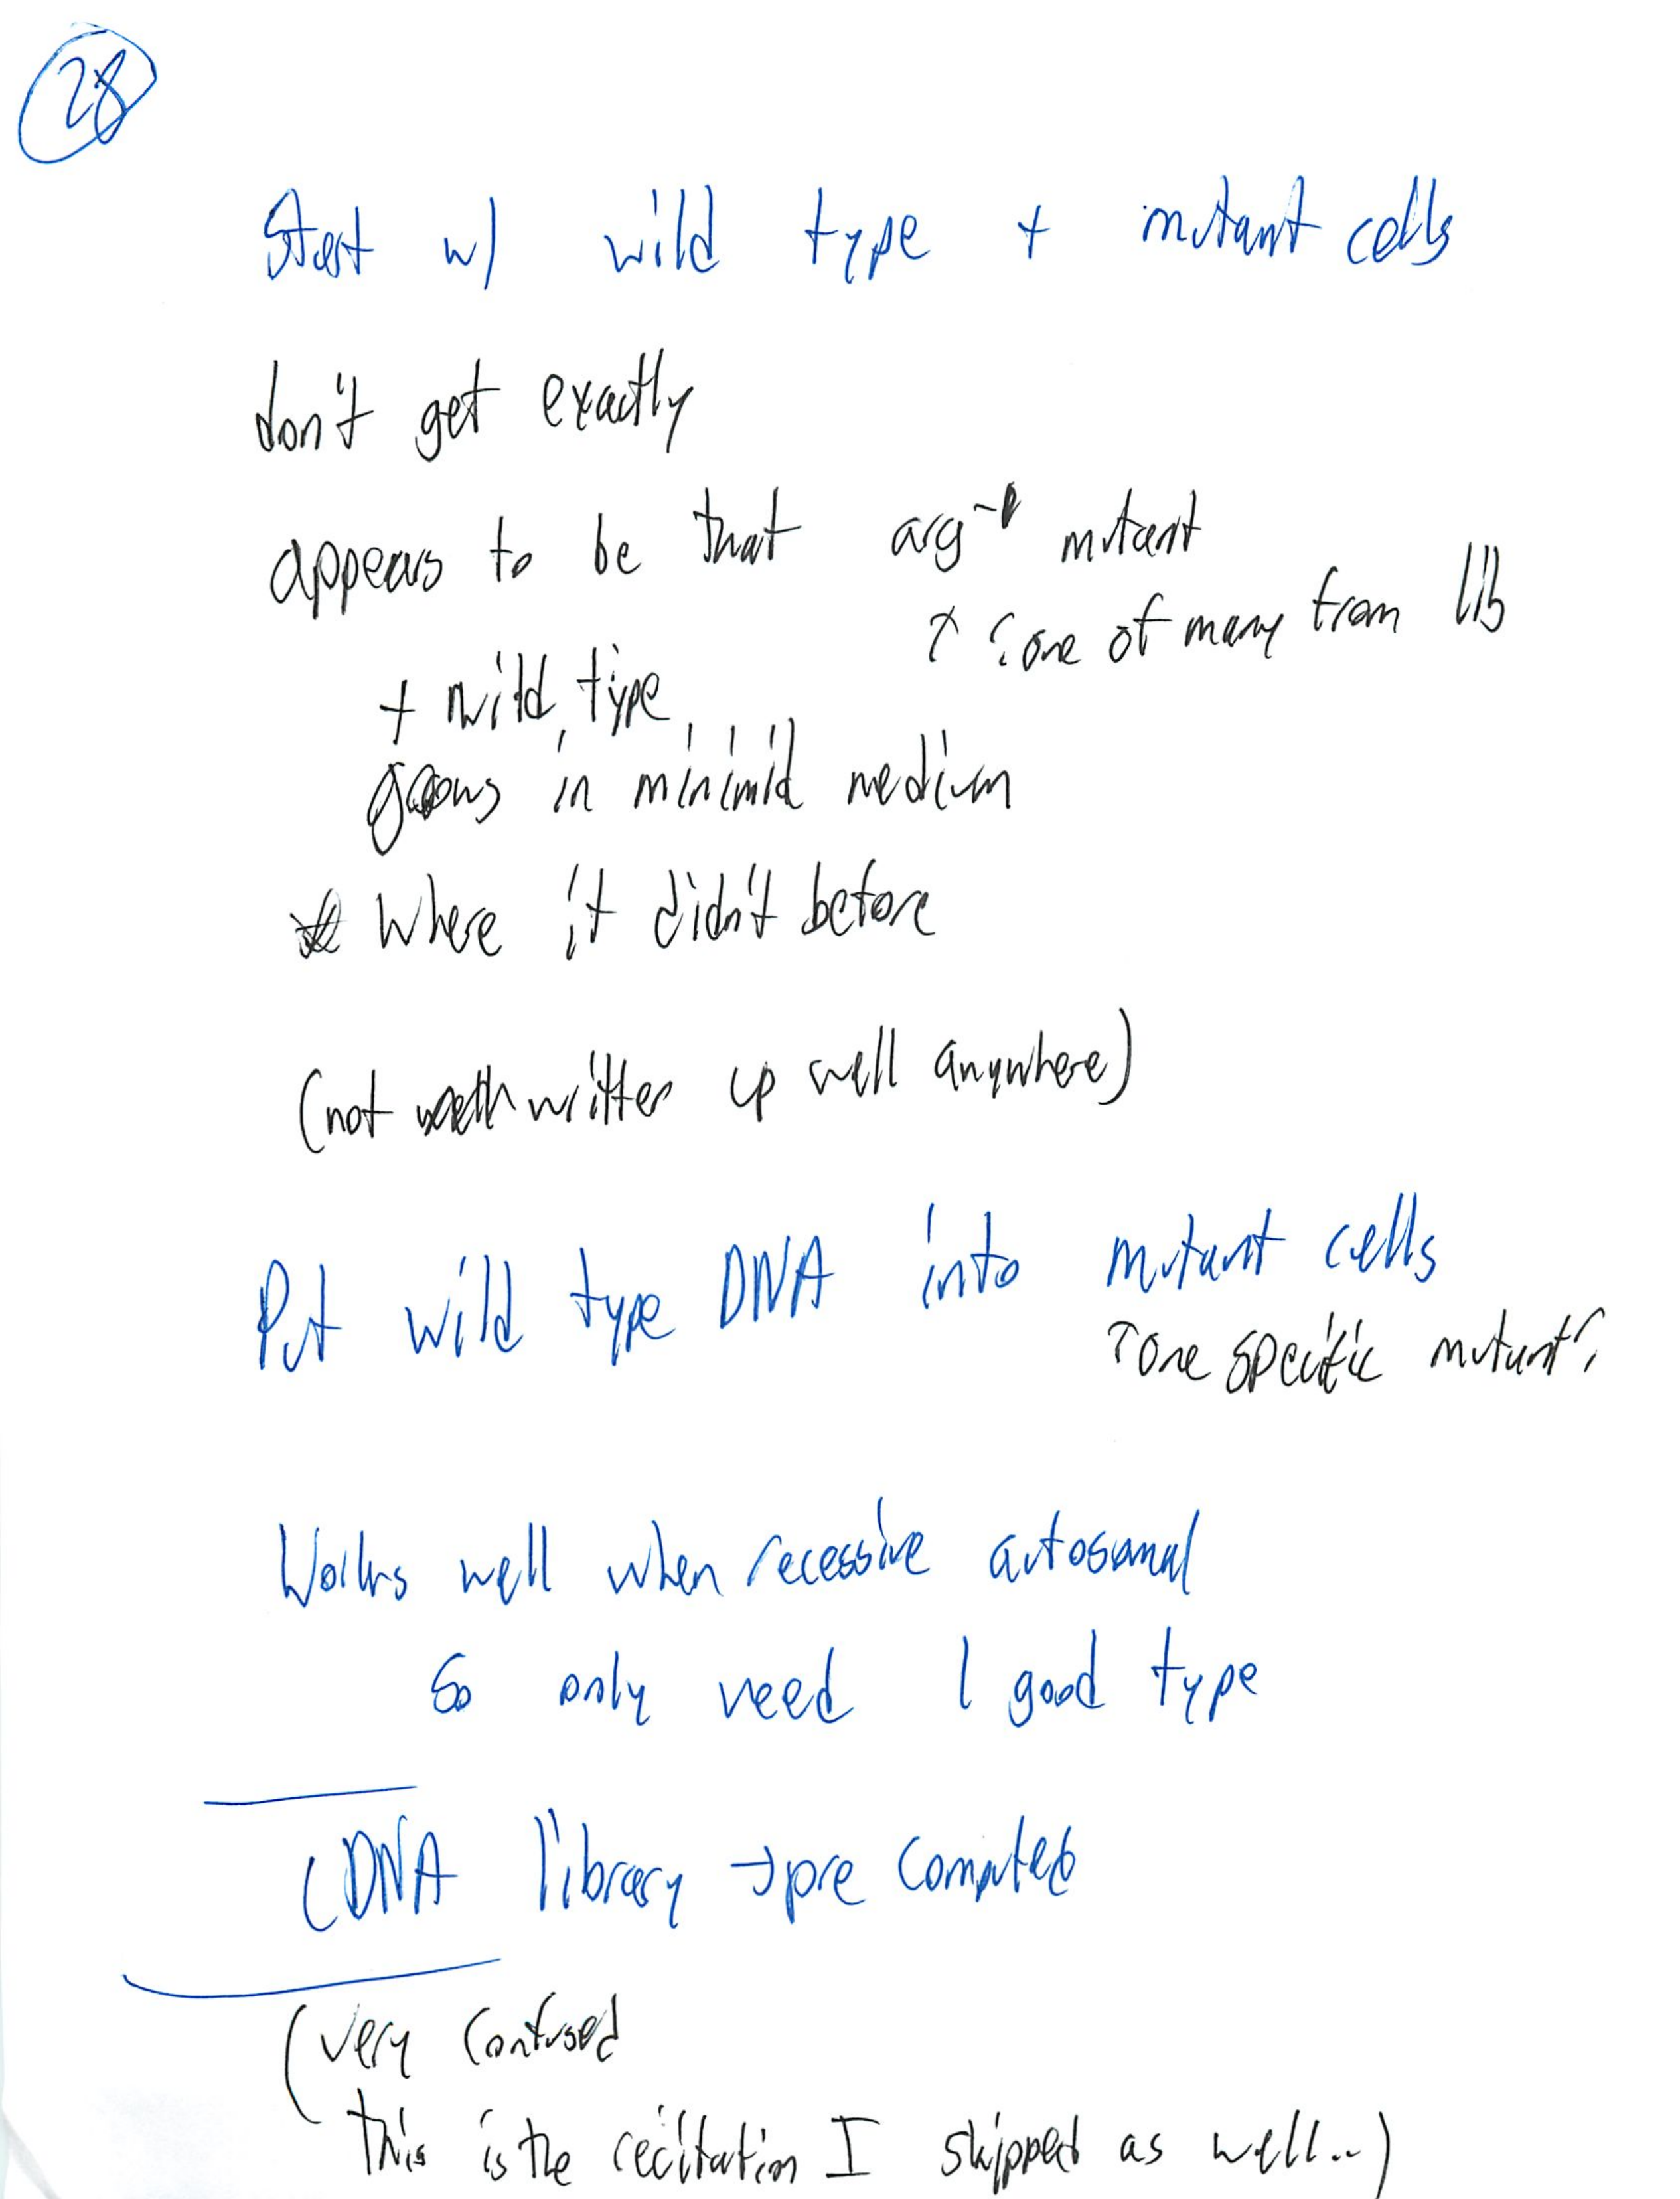 28
Start w/ wild type + mutant cells
don't get exactly
appears to be that arg-1 mutant
↑ one of many from lib
+ wild type
grows in minimid medium
where it didn't before
(not written up well anywhere)
Put wild type DNA into mutant cells
↑ one specific mutant?
Works well when recessive autosomal
So only need 1 good type
cDNA library → pre computed
(very confused
this is the recitation I skipped as well...)